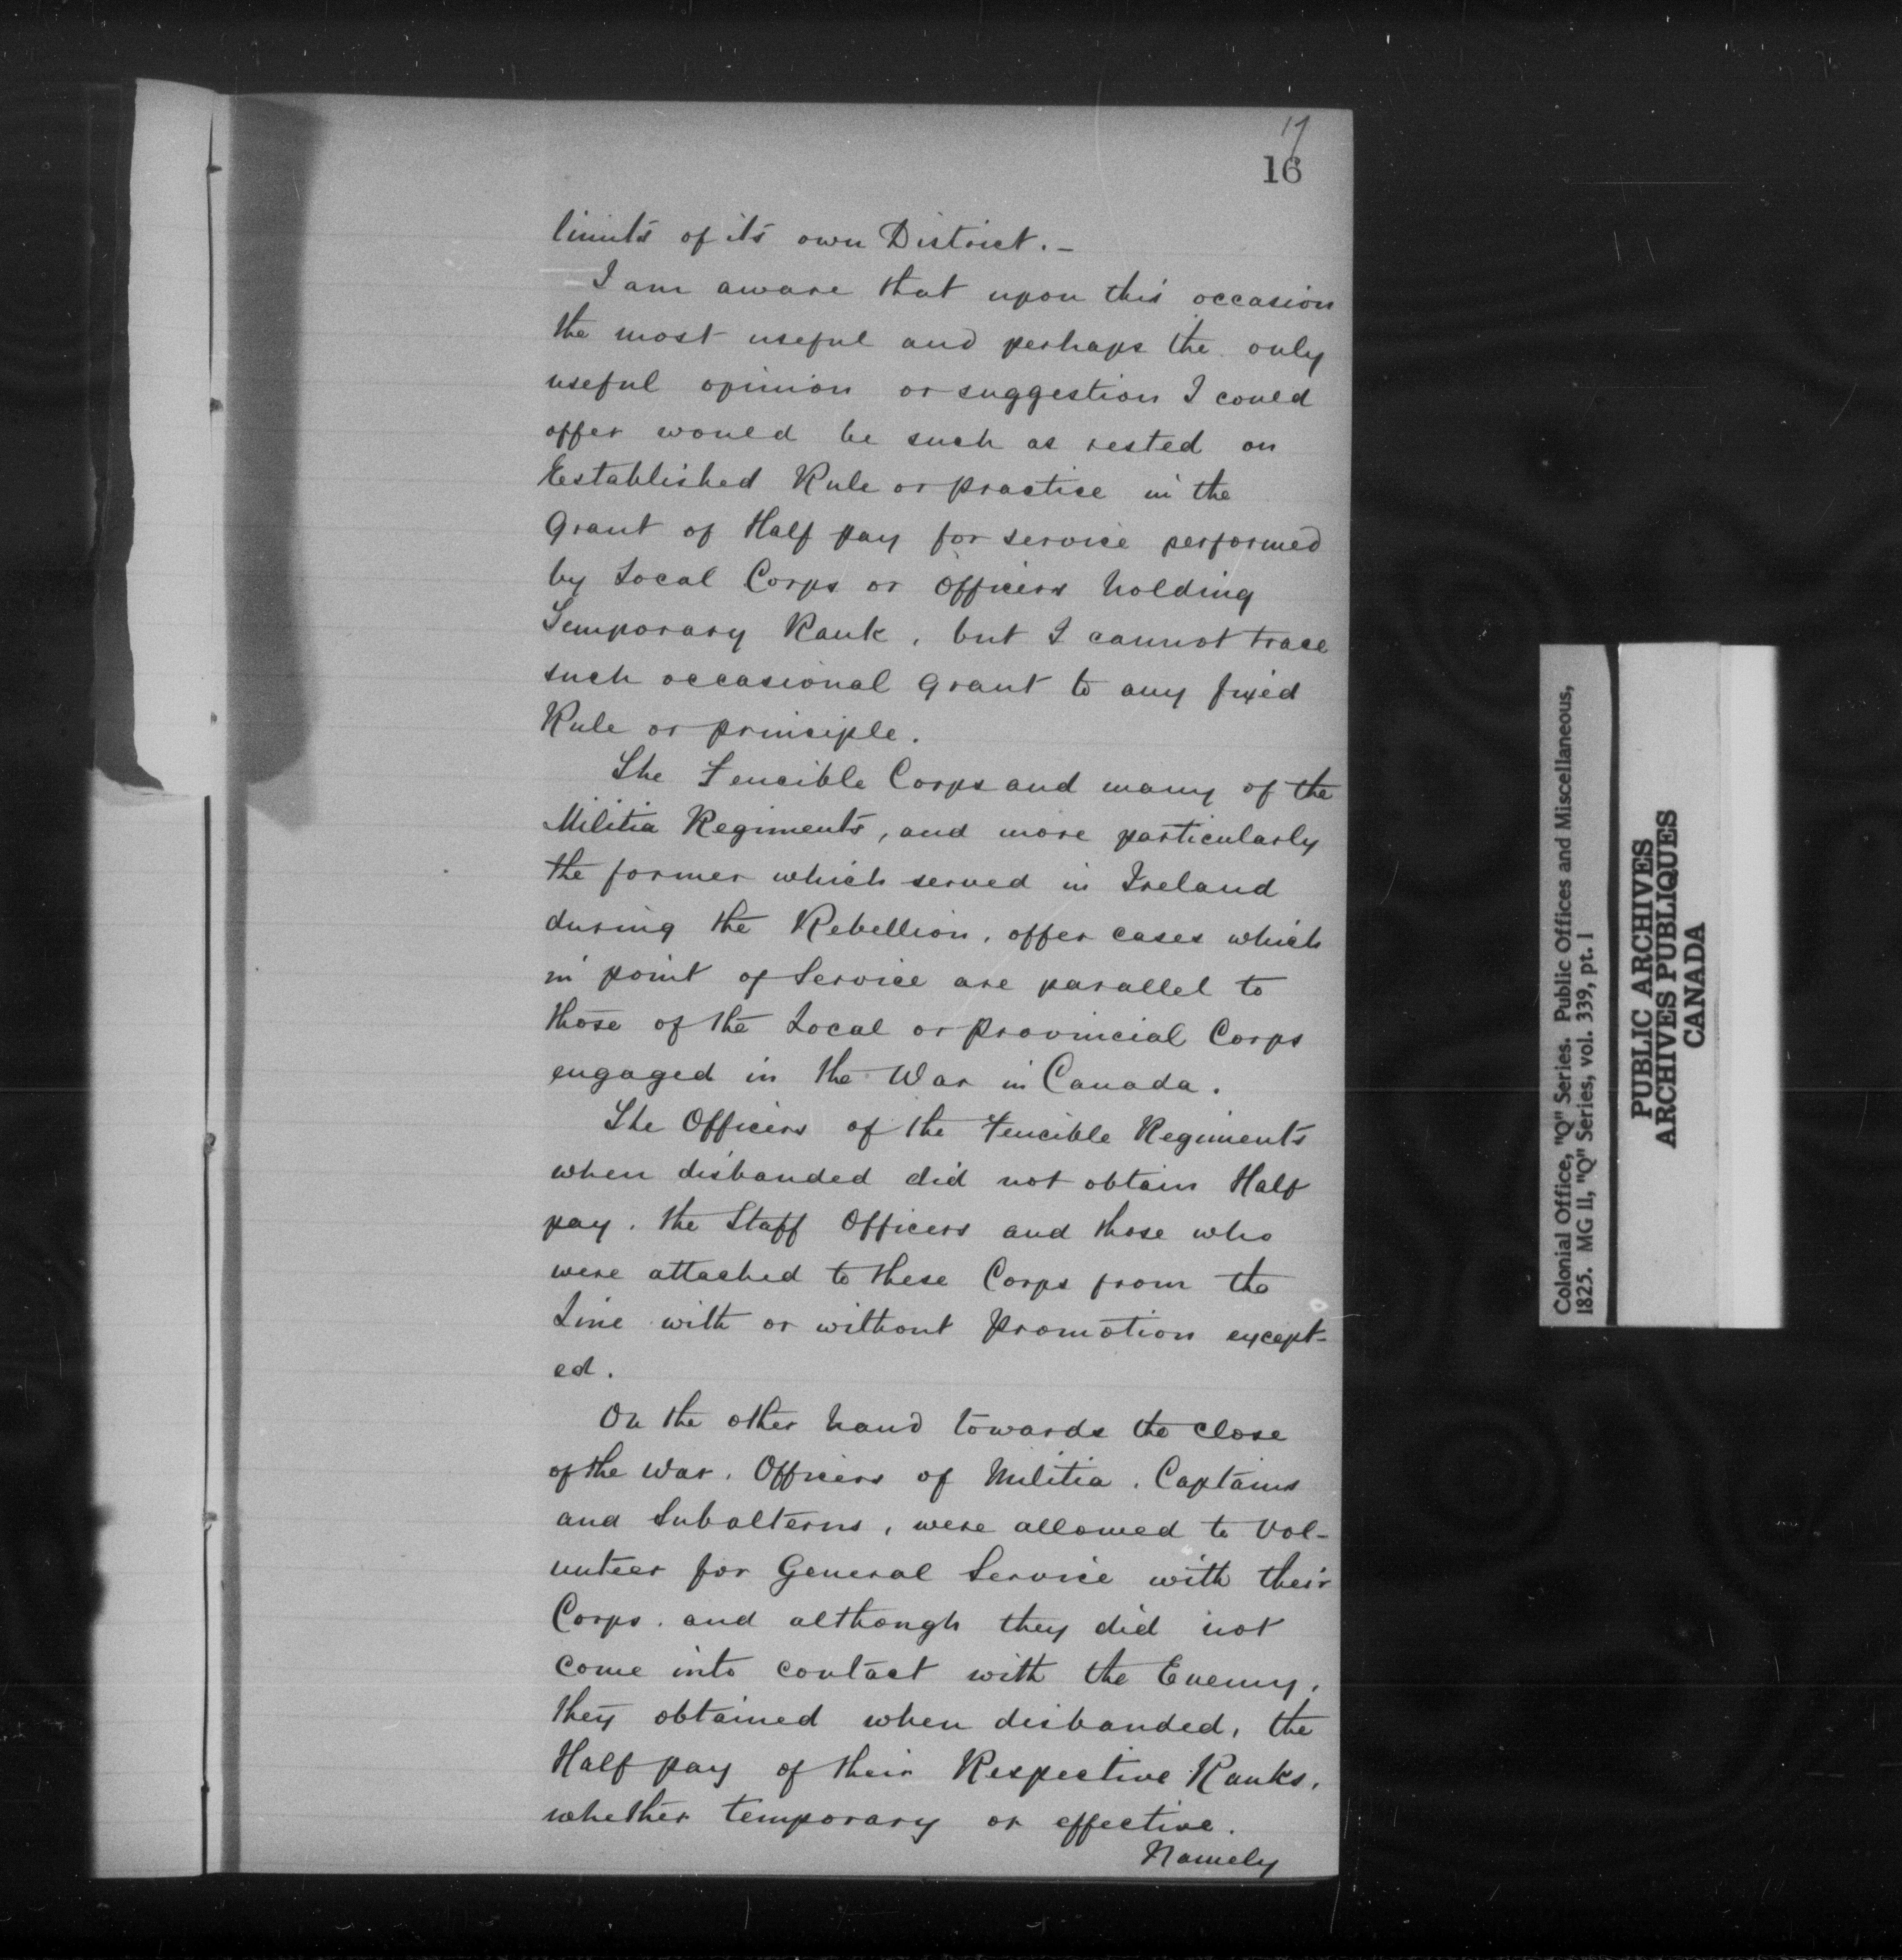 17
16
limits of its own District. -
I am aware that upon this occasion
the most useful and perhaps the only
useful opinion or suggestion I could
offer would be such as rested on
Established Rule or practise in the
Grant of Half pay for service performed
by Local Corps or Officers holding
Temporary Rank, but I cannot trace
such occasional grant to any fixed
Rule or principle.
The Fencible Corps and many of the
Militia Regiments, and more particularly
the former which served in Ireland
during the Rebellion, offer cases which
in point of Service are parallel to
those of the Local or provincial Corps
engaged in the War in Canada.
The Officers of the Fencible Regiments
when disbanded did not obtain Half
pay. the Staff Officers and those who
were attached to these Corps from the
Line with or without promotion except-
ed.
On the other hand towards the close
of the War, Officers of Militia, Captains
and Subalterns, were allowed to Vol-
unteer for General Service with their
Corps. and although they did not
come into contact with the Enemy,
they obtained when disbanded, the
Half pay of their Respective Ranks,
whether temporary or effective.
Namely
Colonial Office, "Q" Series. Public Offices and Miscellaneous,
1825. MG 11, "Q" Series, vol. 339, pt. 1
PUBLIC ARCHIVES
ARCHIVES PUBLIQUES
CANADA